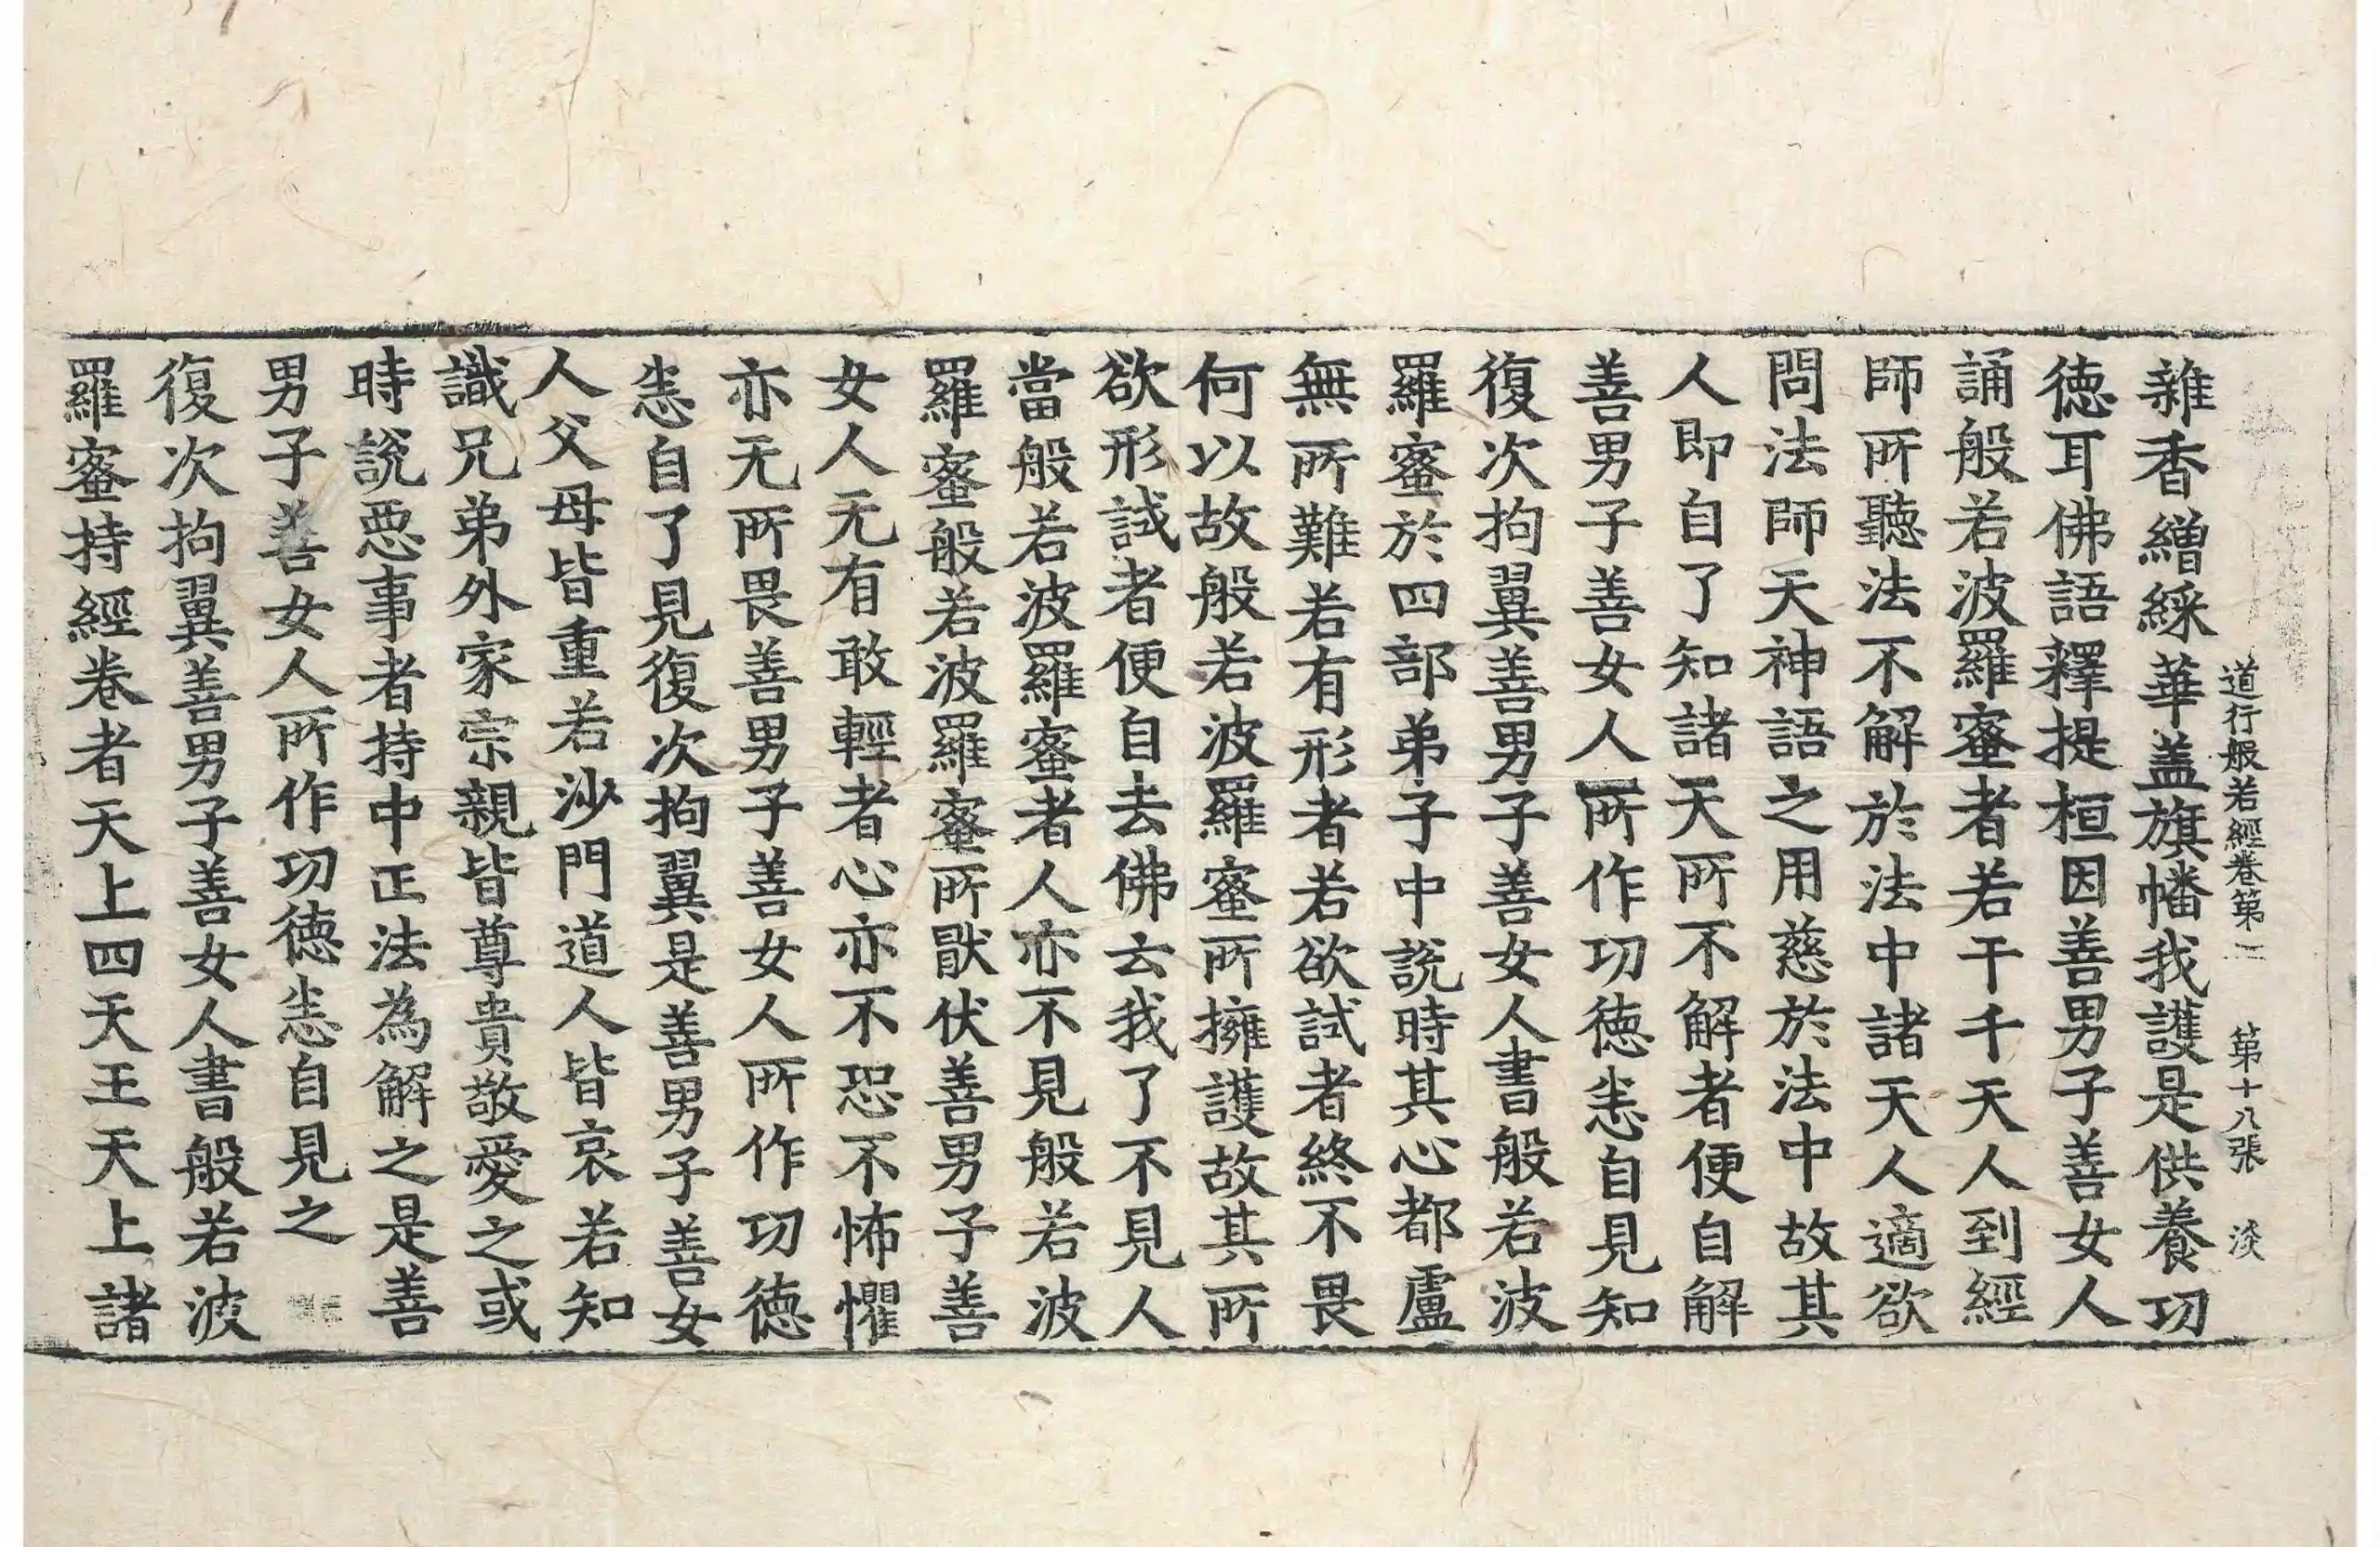 道行般若經卷第二 第十八張 淡
雜香繒綵華盖旗幡我護是供養功
徳耳佛語釋提桓因善男子善女人
誦般若波羅蜜者若干千天人到經
師所聽法不解於法中諸天人適欲
問法師天神語之用慈於法中故其
人即自了知諸天所不解者便自解
善男子善女人所作功徳恙自見知
復次拘翼善男子善女人書般若波
羅蜜於四部弟子中説時其心都盧
無所難若有形者若欲試者終不畏
何以故般若波羅蜜所擁護故其所
欲形試者便自去佛云我了不見人
當般若波羅蜜者人亦不見般若波
羅蜜般若波羅蜜所猒伏善男子善
女人无有敢輕者心亦不恐不怖懼
亦无所畏善男子善女人所作功徳
恙自了見復次拘翼是善男子善女
人父母皆重若沙門道人皆哀若知
識兄弟外家宗親皆尊貴敬愛之或
時説惡事者持中正法為解之是善
男子善女人所作功徳恙自見之
復次拘翼善男子善女人書般若波
羅蜜持經卷者天上四天王天上諸